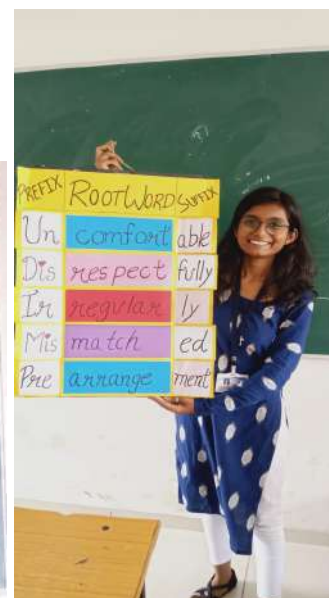 PREFIX ROOTWORD SUFFIX
Un comfort able
Dis respect fully
Ir regular ly
Mis match ed
Pre arrange ment